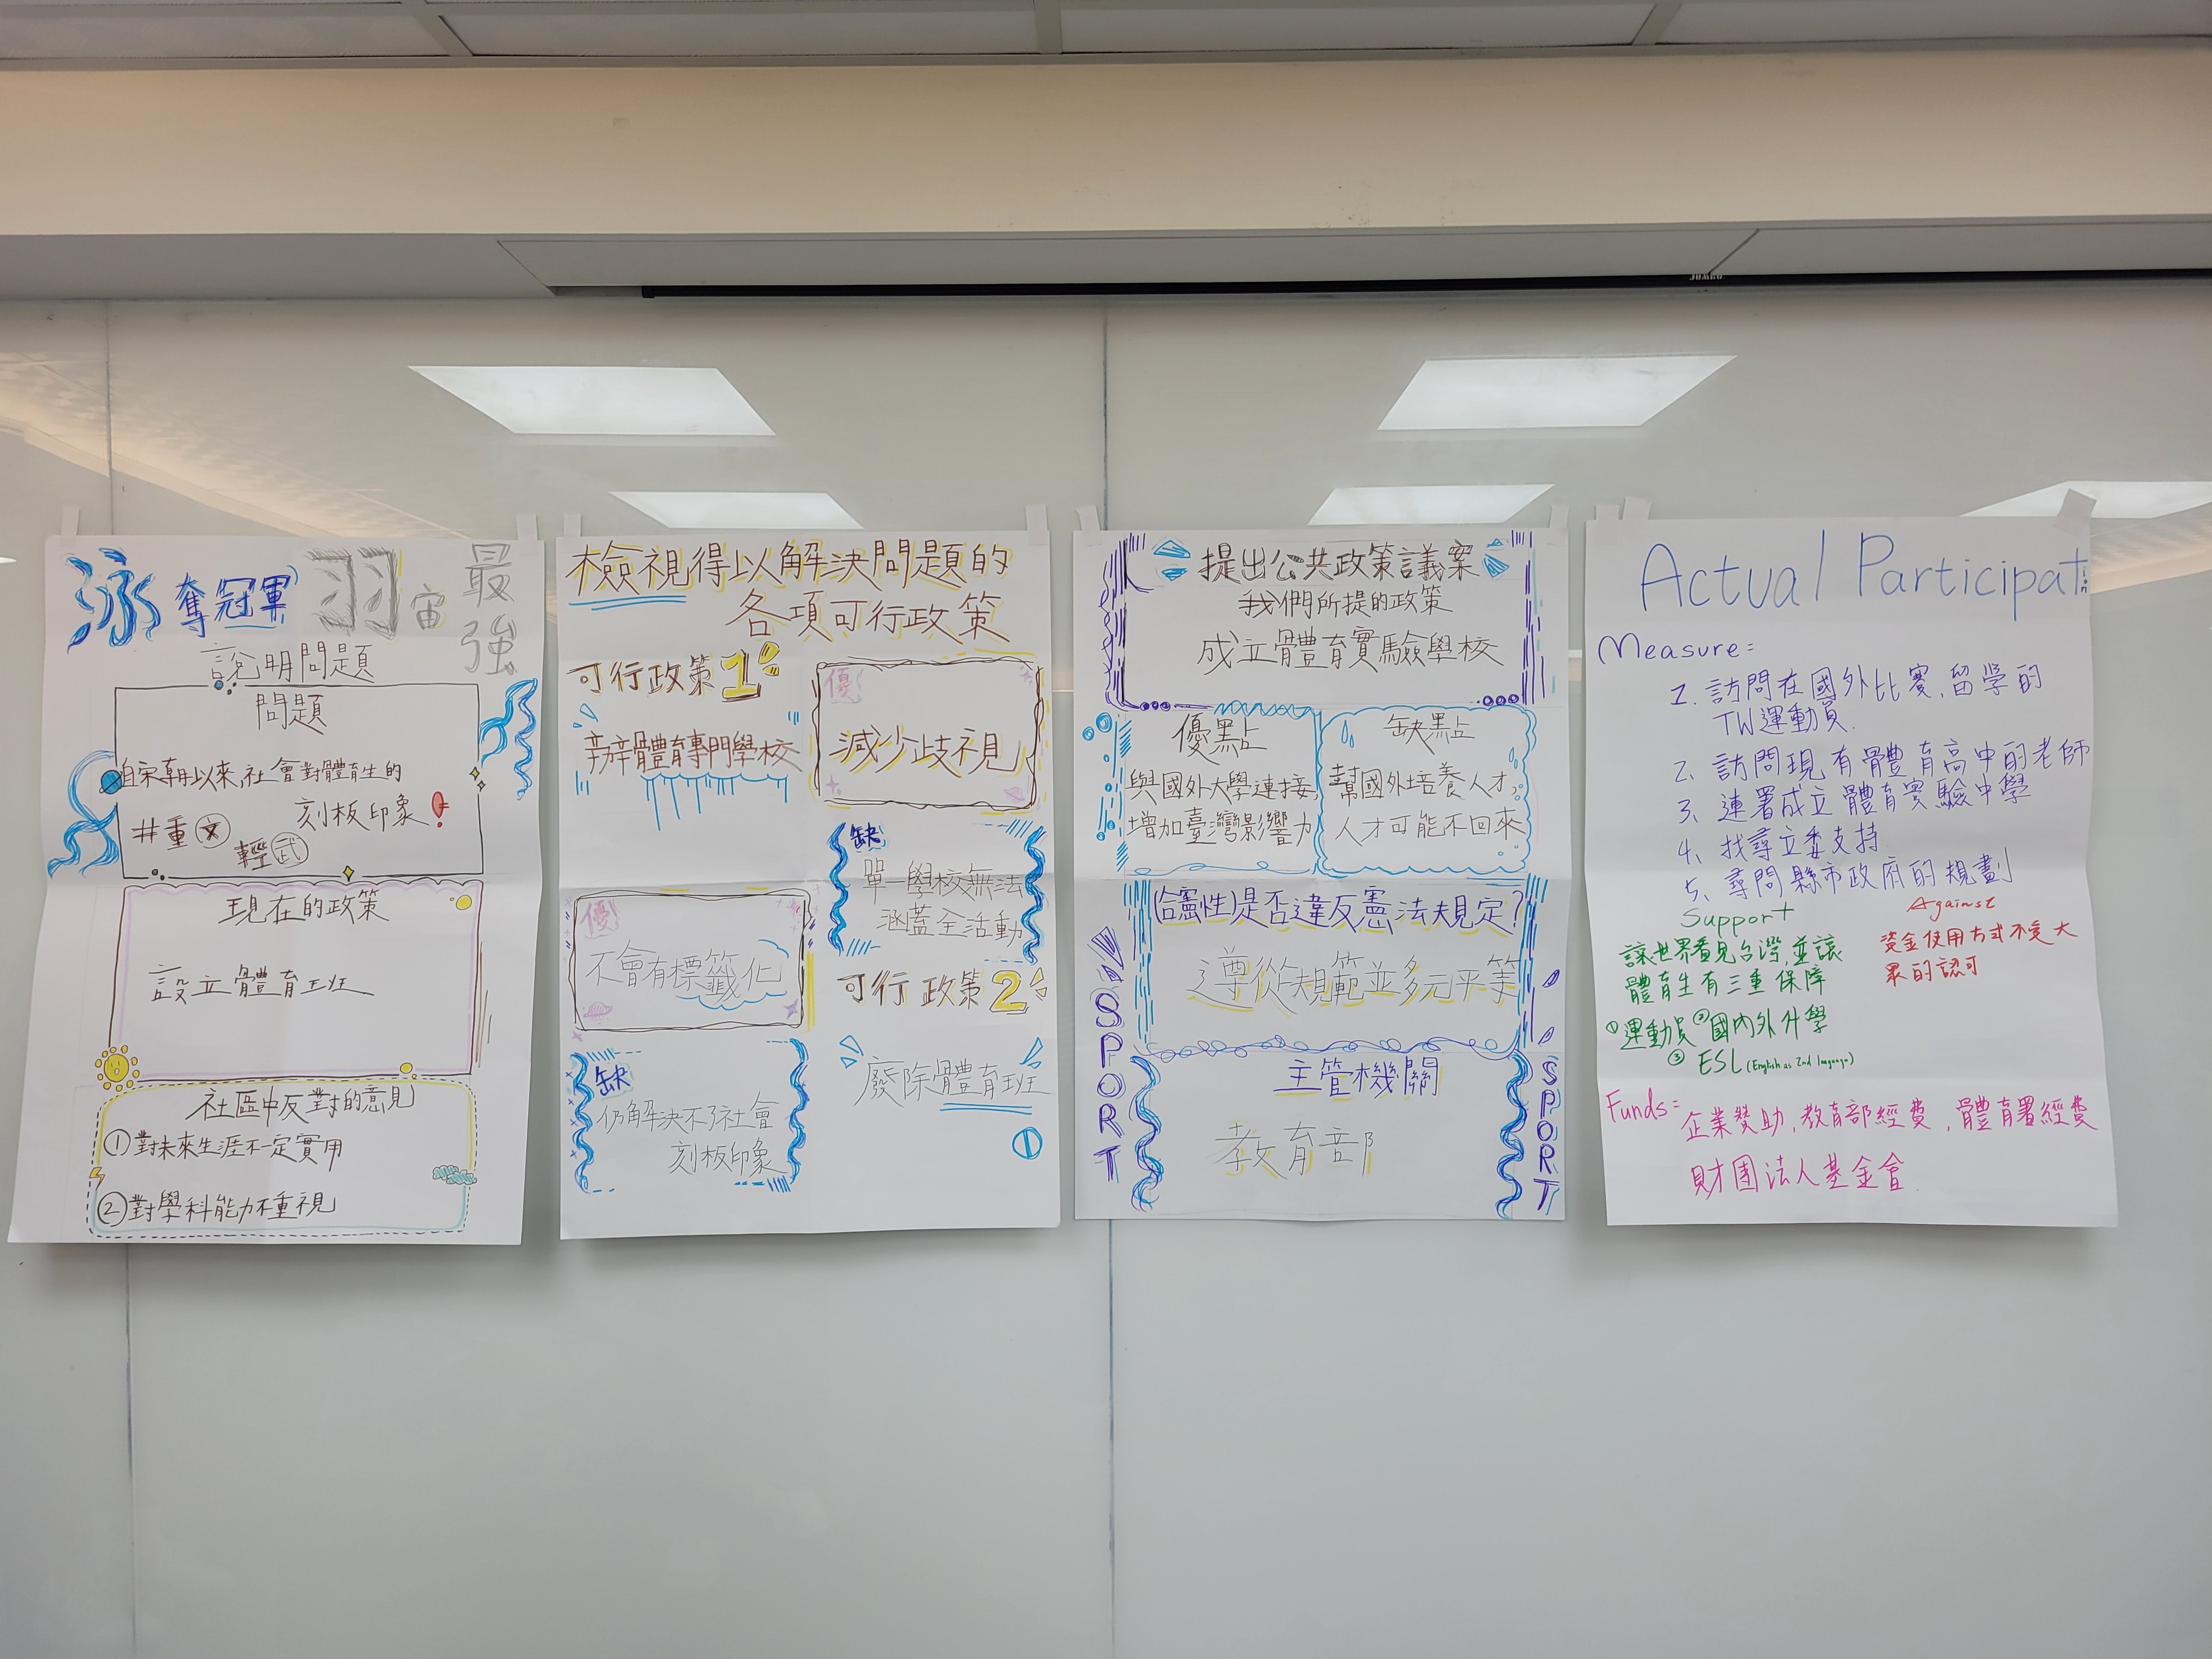 泳奪冠軍 羽宙最強
說明問題
問題
自宋朝以來,社會對體育生的
刻板印象!
#重文
輕武
現在的政策
設立體育班
社區中反對的意見
①對未來生涯不一定實用
②對學科能力不重視
檢視得以解決問題的
各項可行政策
可行政策1
辦體育專門學校
優
減少歧視
缺
單一學校無法
涵蓋全活動
可行政策2
廢除體育班
①
優
不會有標籤化
缺
仍解決不了社會
刻板印象
提出公共政策議案
我們所提的政策
成立體育實驗學校
優點
與國外大學連接,
增加臺灣影響力
缺點
幫國外培養人才,
人才可能不回來
(合憲性)是否違反憲法規定?
遵從規範並多元平等
主管機關
教育部
SPORT
SPORT
Actual Participati
Measure:
1. 訪問在國外比賽,留學的
TW運動員.
2、訪問現有體育高中的老師
3、連署成立體育實驗中學
4、找尋立委支持
5、尋問縣市政府的規劃
Support
讓世界看見台灣,並讓
體育生有三重保障
①運動員 ②國內外升學
③ ESL (English as 2nd language)
Against
資金使用方式不受大
眾的認可
Funds: 企業贊助,教育部經費,體育署經費
財團法人基金會.